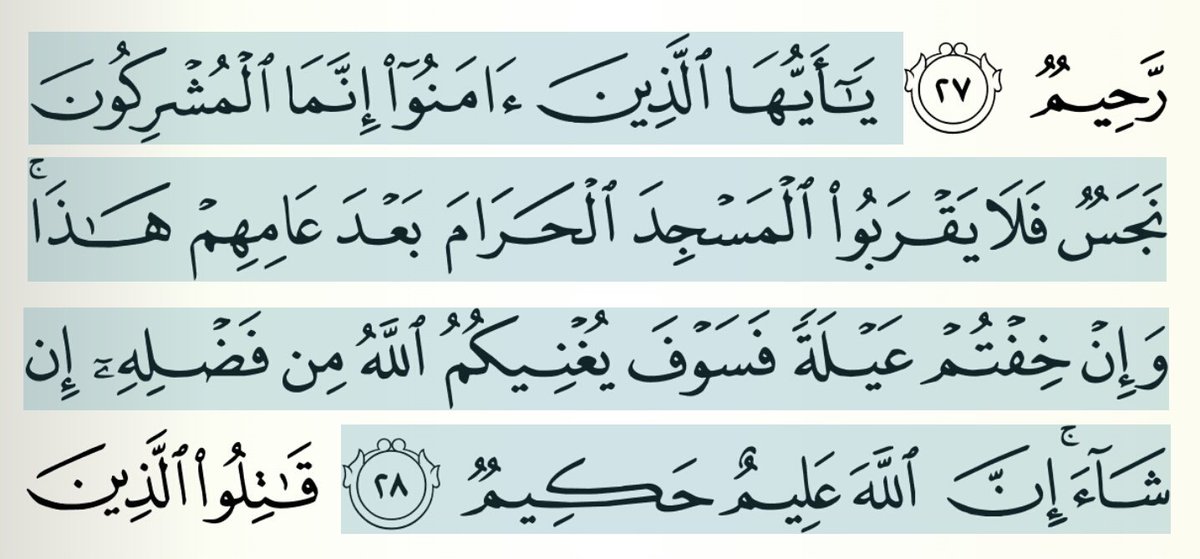 رَّحِيمٌ ٢٧ يَٰٓأَيُّهَا ٱلَّذِينَ ءَامَنُوٓا۟ إِنَّمَا ٱلْمُشْرِكُونَ
نَجَسٌ فَلَا يَقْرَبُوا۟ ٱلْمَسْجِدَ ٱلْحَرَامَ بَعْدَ عَامِهِمْ هَٰذَا ۚ
وَإِنْ خِفْتُمْ عَيْلَةً فَسَوْفَ يُغْنِيكُمُ ٱللَّهُ مِن فَضْلِهِۦٓ إِن
شَآءَ ۚ إِنَّ ٱللَّهَ عَلِيمٌ حَكِيمٌ ٢٨ قَٰتِلُوا۟ ٱلَّذِينَ